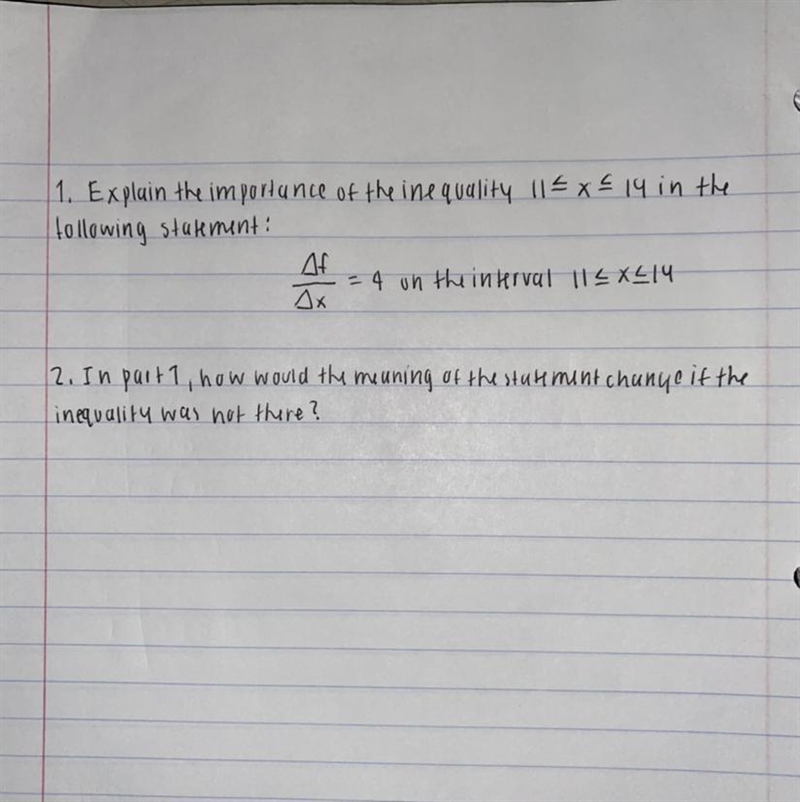 1. Explain the importance of the inequality 11 ≤ x ≤ 14 in the
following statement:
Δf/Δx = 4 on the interval 11 ≤ x ≤ 14
2. In part 1, how would the meaning of the statement change if the
inequality was not there?